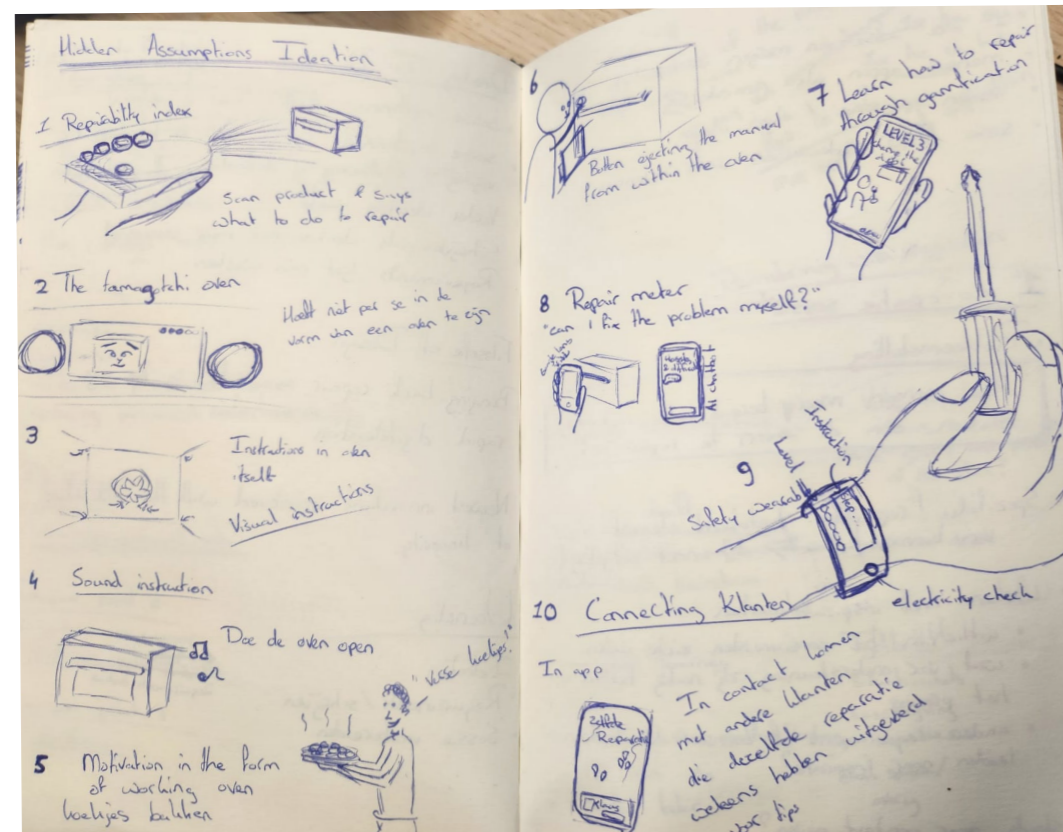 Hidden Assumptions Ideation
1 Repairability index
Scan product & says
what to do to repair
2 The tamagotchi oven
Hoeft niet per se in de
vorm van een oven te zijn
3
Instructions in oven
itself
Visual instructions
4 Sound instruction
Doe de oven open
"Verse koekjes!"
5 Motivation in the form
of working oven
koekjes bakken
6
Button ejecting the manual
from within the oven
7 Learn how to repair
through gamification
LEVEL 3
change the
8 Repair meter
"can I fix the problem myself?"
AI chatbot
9
Safety wearable
Level
Instruction
Step...
electricity check
10 Connecting Klanten
In app
Zelfde
Reparatie
In contact komen
met andere klanten
die dezelfde reparatie
weleens hebben uitgevoerd
voor tips